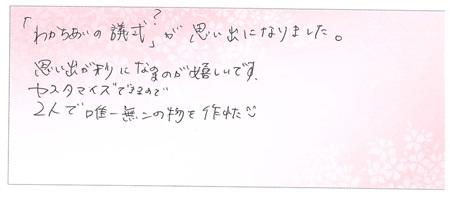 「わかちあいの儀式」?が思い出になりました。
思い出が形になるのが嬉しいです。
カスタマイズできるので
2人で唯一無二の物を作れた